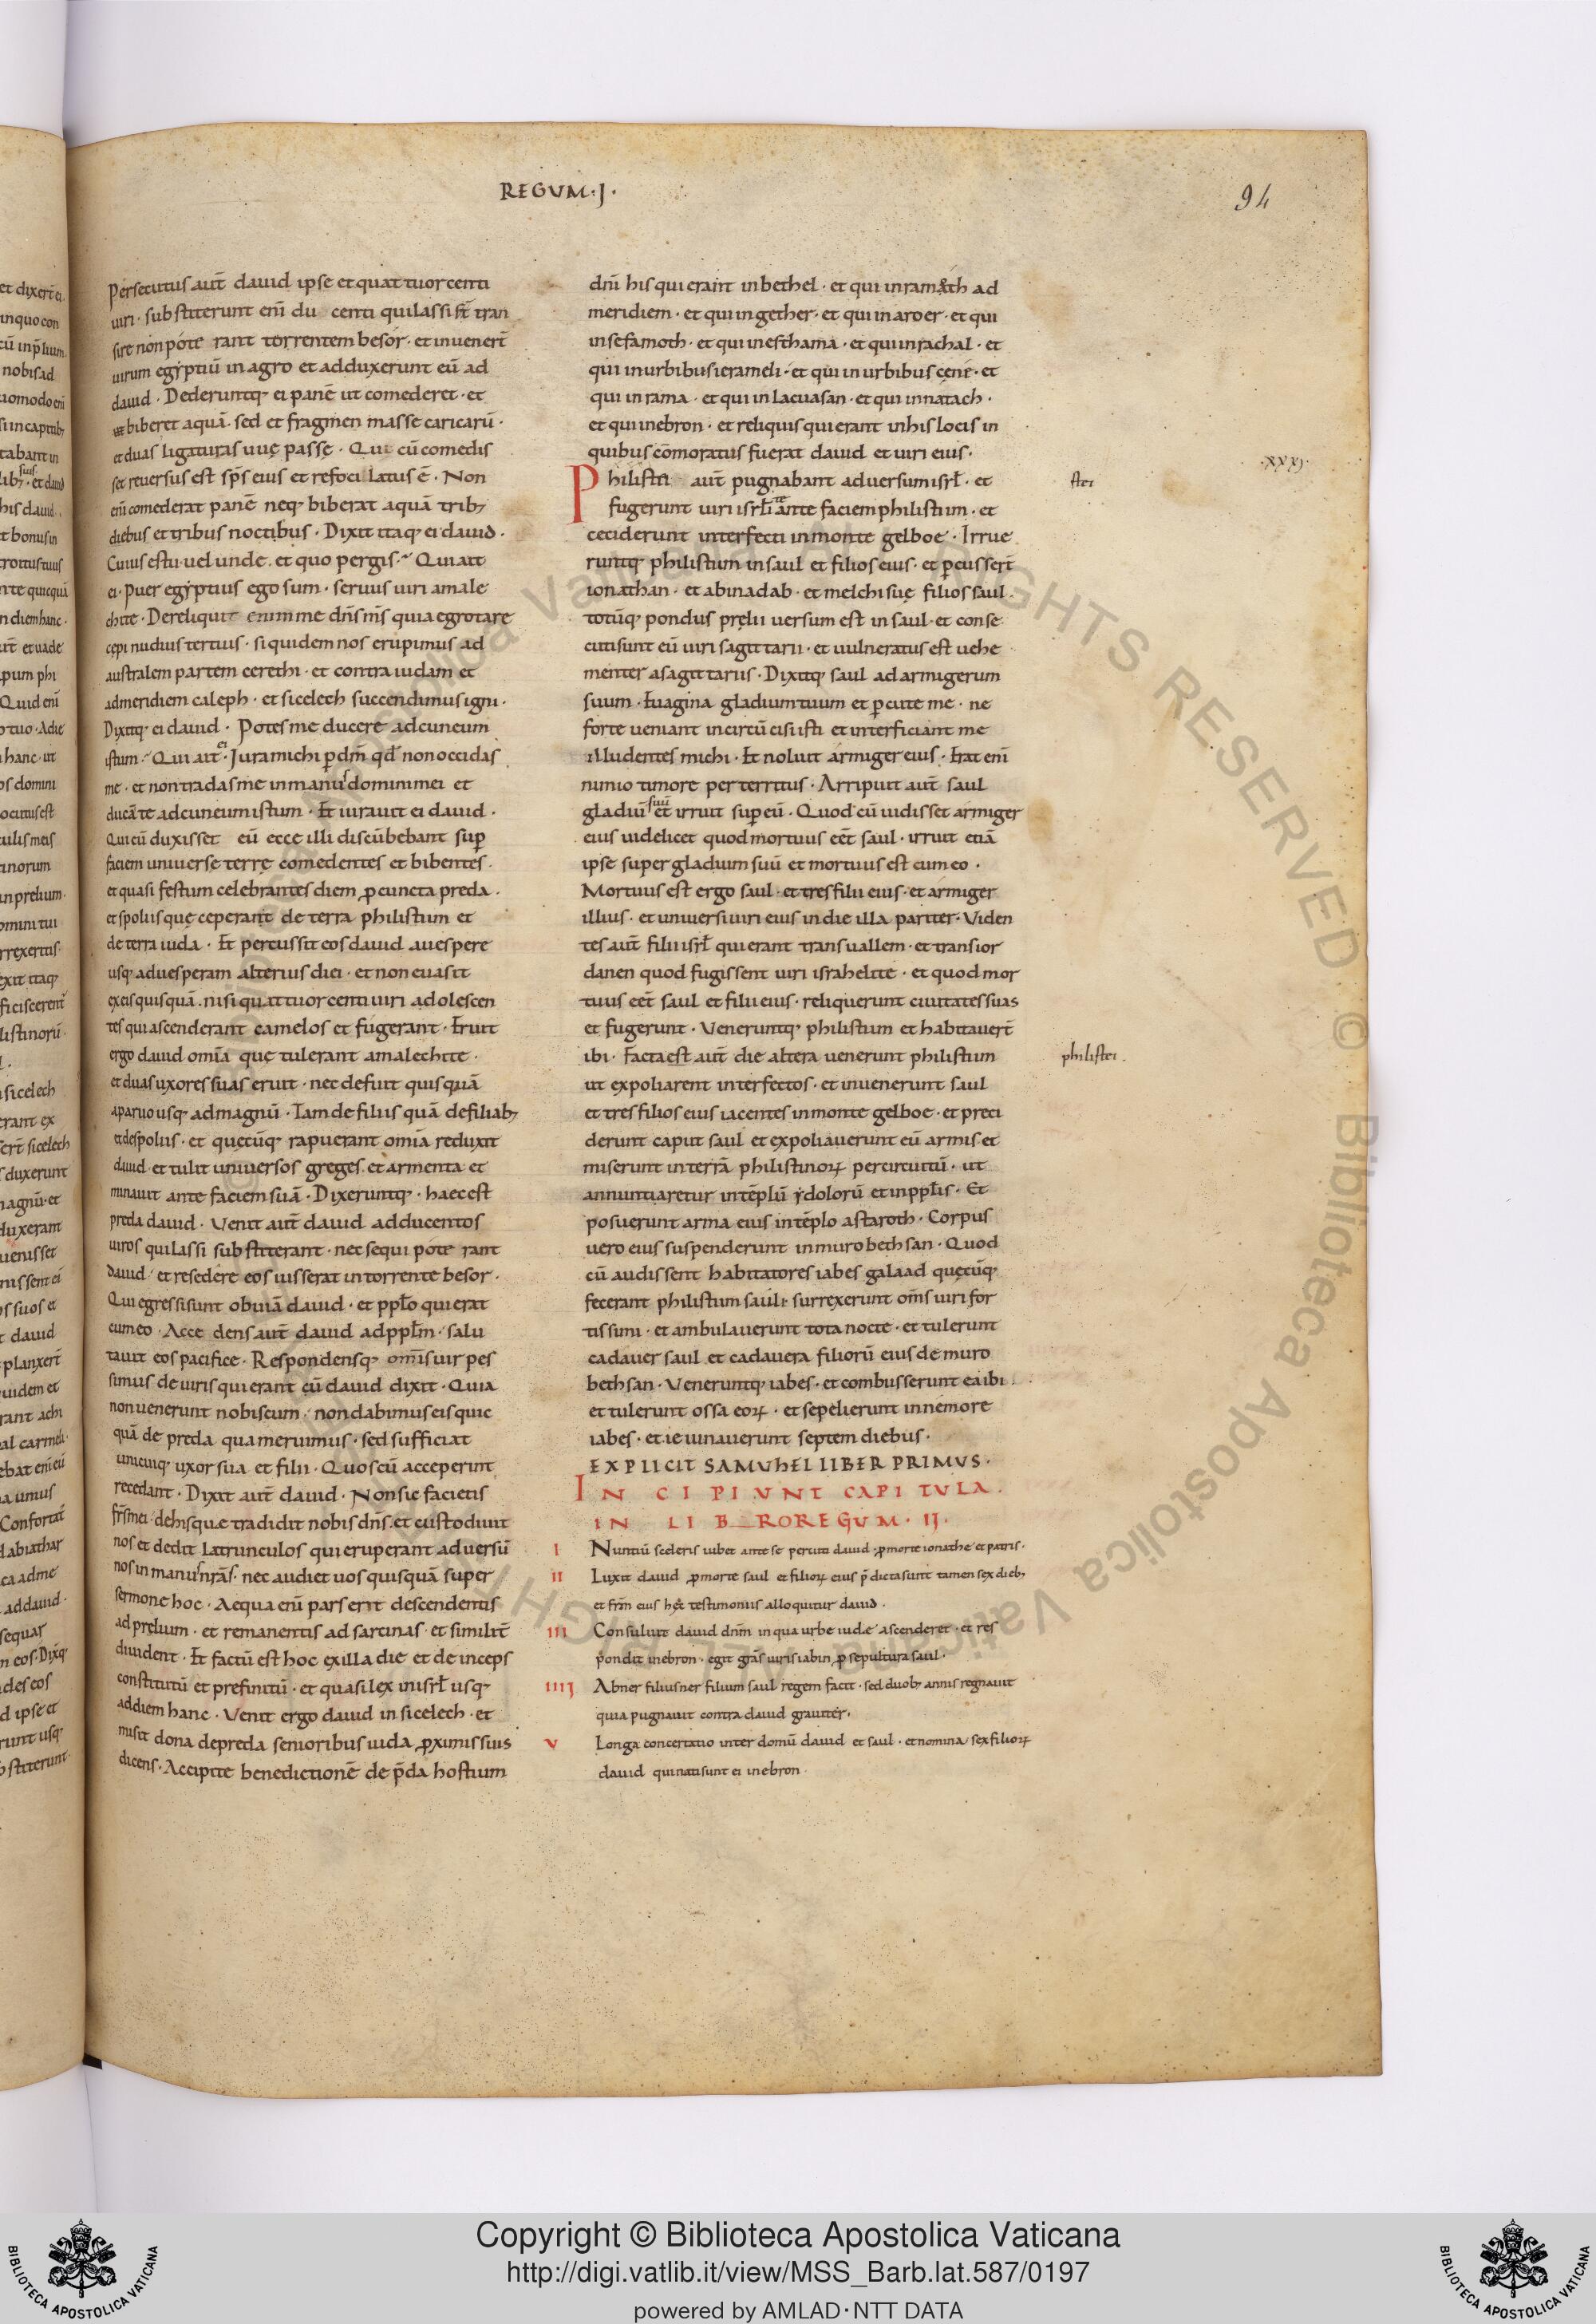 REGUM · I ·
94
Persecutus aut̄ dauid ipse et quattuorcenti
uiri · substiterunt eni᷇ du centi quilassi st̄ tran
sire nonpote rant torrentem besor · et inuenert̄
uirum egyptiū inagro et adduxerunt eū ad
dauid · Dederuntq; ei panē ut comederet · et
biberet aquā · sed et fragmen masse caricarū ·
et duas ligaturas uuę passe · Qui cū comedis
set reuersus est sp̄s eius et refocilatus ē · Non
eni᷇ comederat panē neq; biberat aquā trib;
diebus et tribus noctibus · Dixit itaq; ei dauid ·
Cuius estu uel unde · et quo pergis · Qui ait
ei · Puer egyptius ego sum · seruus uiri amale
chite · Dereliquit enim me dn̄s m̄s quia egrotare
cępi nudius tertius · siquidem nos erupimus ad
australem partem cerethi · et contra iudam et
admeridiem caleph · et sicelech succendimus igni ·
Dixitq; ei dauid · Potes me ducere adcuneum
istum · Qui ait ei · Iura michi p̄ dm̄ qd̄ non occidas
me · et non tradas me inmanu domini mei et
ducā te adcuneum istum · Et iurauit ei dauid ·
Qui cū duxisset eū ecce illi discūbebant sup̄
faciem uniuerse terrę comedentes et bibentes ·
et quasi festum celebrantes diem p̄ cuncta preda ·
et spoliis quę ceperant de terra philistiim et
de terra iuda · Et percussit eos dauid auespere
usq; aduesperam alterius diei · et non euasit
exeis quisquā · nisi quattuorcenti uiri adolescen
tes qui ascenderant camelos et fugerant · Eruit
ergo dauid omīa quę tulerant amalechite ·
et duas uxores suas eruit · nec defuit quisquā
aparuo usq; admagnū · Iam de filiis quā de filiab;
et de spoliis · et quęcūq; rapuerant omīa reduxit
dauid · et tulit uniuersos greges et armenta et
minauit ante faciem suā · Dixeruntq; · haec est
preda dauid · Venit aut̄ dauid adducentos
uiros qui lassi substiterant · nec sequi pote rant
dauid · et residere eos iusserat intorrente besor ·
Qui egressi sunt obuiā dauid · et pplo qui erat
cum eo · Acce dens aut̄ dauid adpplm · salu
tauit eos pacifice · Respondensq; om̄is uir pes
simus de uiris qui erant cū dauid dixit · Quia
non uenerunt nobiscum · non dabimus eis quic
quā de preda qua meruimus · sed sufficiat
unicuiq; uxor sua et filii · Quos cū acceperint
recedant · Dixit aut̄ dauid · Non sic facietis
fr̄s mei · de his quę tradidit nobis dn̄s · et custodiuit
nos et dedit latrunculos qui eruperant aduersū
nos in manus nr̄as · nec audiet uos quisquā super
sermone hoc · Aequa eni᷇ pars erit descendentis
ad prelium · et remanentis ad sarcinas · et similit̄
diuident · Et factū est hoc exilla die et deinceps
constitutū et prefinitū · et quasi lex inisrl̄ usq;
addiem hanc · Venit ergo dauid in sicelech · et
misit dona depreda senioribus iuda p̄ximis suis
dicens · Accipite benedictionē de p̄da hostium
dn̄i his qui erant inbethel · et qui inramoth ad
meridiem · et qui ingether · et qui inaroer · et qui
insefamoth · et qui inesthama · et qui inrachal · et
qui inurbibus ierameli · et qui in urbibus ceni · et
qui in rama · et qui in lacuasan · et qui innatach ·
et qui inebron · et reliquis qui erant inhis locis in
quibus cōmoratus fuerat dauid et uiri eius ·
·xxxi·
Philistei aut̄ pugnabant aduersum isrl̄ · et
stei
fugerunt uiri isrl̄ ante faciem philistiim · et
ceciderunt interfecti inmonte gelboe · Irrue
runtq; philistiim in saul et filios eius · et p̄cussert̄
ionathan · et abinadab · et melchisuę filios saul ·
totūq; pondus prelii uersum est in saul · et conse
cuti sunt eū uiri sagittarii · et uulneratus est uehe
menter asagittariis · Dixitq; saul ad armigerum
suum · Euagina gladium tuum et p̄cute me · ne
forte ueniant incircūcisi isti et interficiant me
illudentes michi · Et noluit armiger eius · Erat eni᷇
nimio timore perterritus · Arripuit aut̄ saul
gladiū suū et irruit sup̄ eū · Quod cū uidisset armiger
eius uidelicet quod mortuus eēt saul · irruit etiā
ipse super gladium suū et mortuus est cum eo ·
Mortuus est ergo saul · et tres filii eius · et armiger
illius · et uniuersi uiri eius in die illa pariter · Viden
tes aut̄ filii isrl̄ qui erant trans uallem · et transior
danen quod fugissent uiri israhelite · et quod mor
tuus eēt saul et filii eius · reliquerunt ciuitates suas
et fugerunt · Veneruntq; philistiim et habitauert̄
ibi · Facta est aut̄ die altera uenerunt philistiim
philistei ·
ut expoliarent interfectos · et inuenerunt saul
et tres filios eius iacentes inmonte gelboe · et preci
derunt caput saul et expoliauerunt eū armis et
miserunt in terrā philistinoꝝ per circuitū · ut
annuntiaretur intēplū ydolorū et inpplis · Et
posuerunt arma eius intēplo astaroth · Corpus
uero eius suspenderunt inmuro bethsan · Quod
cū audissent habitatores iabes galaad quęcūq;
fecerant philistiim sauli · surrexerunt om̄s uiri for
tissimi · et ambulauerunt tota nocte · et tulerunt
cadauer saul et cadauera filiorū eius de muro
bethsan · Veneruntq; iabes · et combusserunt ea ibi ·
et tulerunt ossa eoꝝ · et sepelierunt innemore
iabes · et ieiunauerunt septem diebus ·
EXPLICIT SAMUHEL LIBER PRIMUS ·
INCIPIUNT CAPITULA
IN LIBRO REGUM · II ·
I Nuntiū sceleris iubet ante se percuti dauid · p̄ morte ionathe et patris ·
II Luxit dauid p̄ morte saul et filioꝝ eius p̄dicta sunt tamen sex dieb;
et frm̄ eius hęc testimoniis alloquitur dauid ·
III Consuluit dauid dnm̄ in qua urbe iudę ascenderet · et res
pondit inebron · egit grās uiris iabin p̄ sepultura saul ·
IIII Abner filius ner filium saul regem facit · sed duob; annis regnauit
quia pugnauit contra dauid grauiter ·
V Longa concertatio inter domū dauid et saul · et nomina sex filioꝝ
dauid qui nati sunt ei inebron ·
Copyright © Biblioteca Apostolica Vaticana
http://digi.vatlib.it/view/MSS_Barb.lat.587/0197
powered by AMLAD · NTT DATA